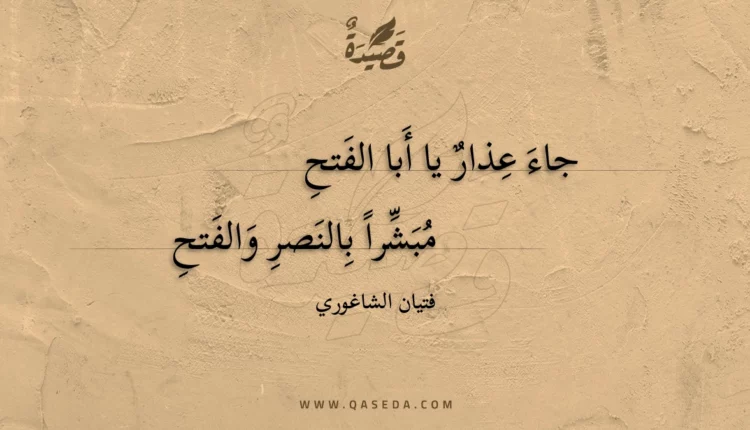 قَصِيدَةٌ
جاءَ عِذارٌ يا أَبا الفَتحِ
مُبَشِّراً بِالنَصرِ وَالفَتحِ
فتيان الشاغوري
WWW.QASEDA.COM